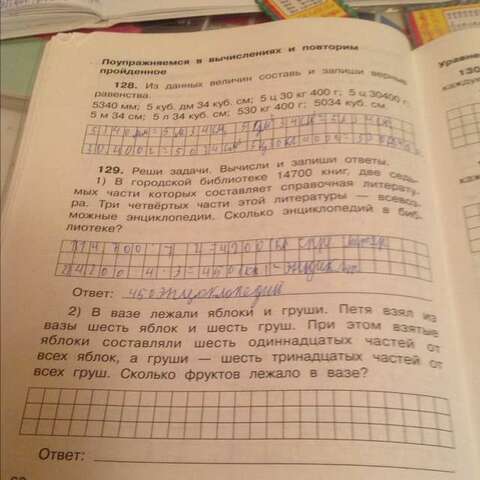 Поупражняемся в вычислениях и повторим
пройденное
128. Из данных величин составь и запиши верные
равенства.
5340 мм; 5 куб. дм 34 куб. см; 5 ц 30 кг 400 г; 5 ц 30400 г;
5 м 34 см; 5 л 34 куб. см; 530 кг 400 г; 5034 куб. см.
129. Реши задачи. Вычисли и запиши ответы.
1) В городской библиотеке 14700 книг, две седь-
мых части которых составляет справочная литерату-
ра. Три четвёртых части этой литературы — всевоз-
можные энциклопедии. Сколько энциклопедий в биб-
лиотеке?
Ответ: 450 энциклопедий
2) В вазе лежали яблоки и груши. Петя взял из
вазы шесть яблок и шесть груш. При этом взятые
яблоки составляли шесть одиннадцатых частей от
всех яблок, а груши — шесть тринадцатых частей от
всех груш. Сколько фруктов лежало в вазе?
Ответ:
Уравне
130
каждую
каж